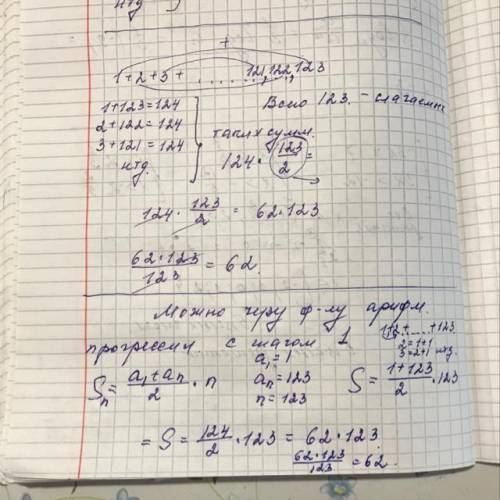 итд
+
1+2+3+ . . . . . . . 121, 122, 123
1+123=124
2+122=124
3+121=124
итд.
Всего 123 - слагаемых
таких сумм.
124 · 123/2 =
124 · 123/2 = 62·123
62·123/123 = 62.
Можно через ф-лу арифм.
прогрессии с шагом 1
1+2+......+123
2=1+1
3=2+1 итд.
a₁=1
aₙ=123
n=123
Sₙ = a₁+aₙ/2 · n
S = 1+123/2 · 123
= S = 124/2 · 123 = 62·123
62·123/123 = 62.